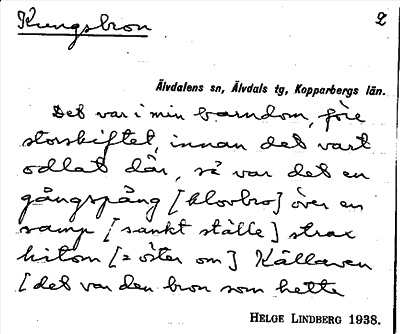 Kungsbron 2
Älvdalens sn, Älvdals tg, Kopparbergs län.
Det var i min barndom, före
storskiftet, innan det vart
odlat där, så var det en
gångspång [klovbro] över en
samp [sankt ställe] strax
hitom [= öster om] Källaren
[det var den bron som hette
HELGE LINDBERG 1938.